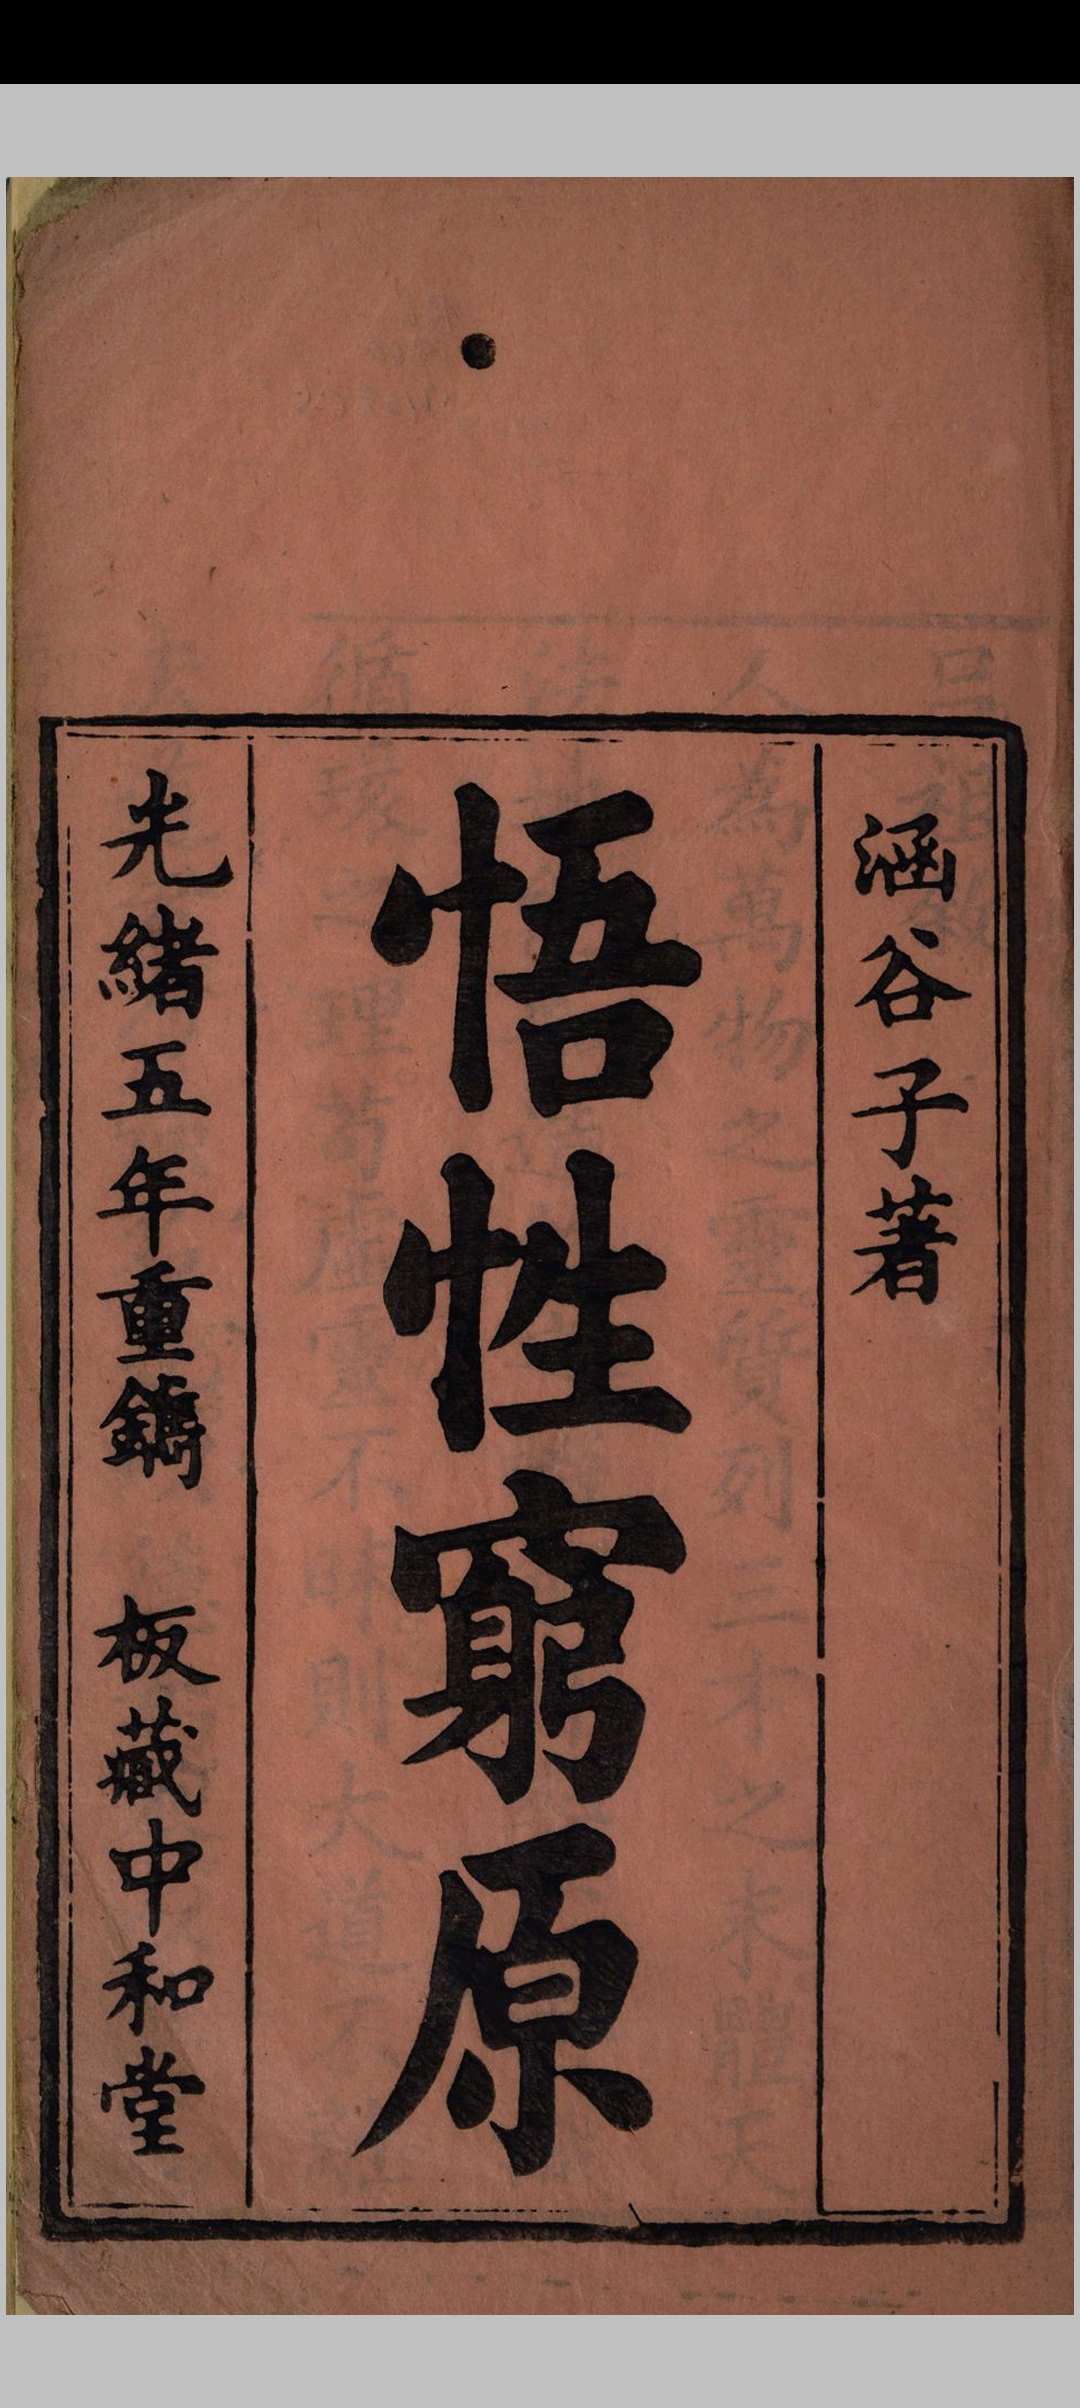 涵谷子著
悟性窮原
光緒五年重鐫 板藏中和堂